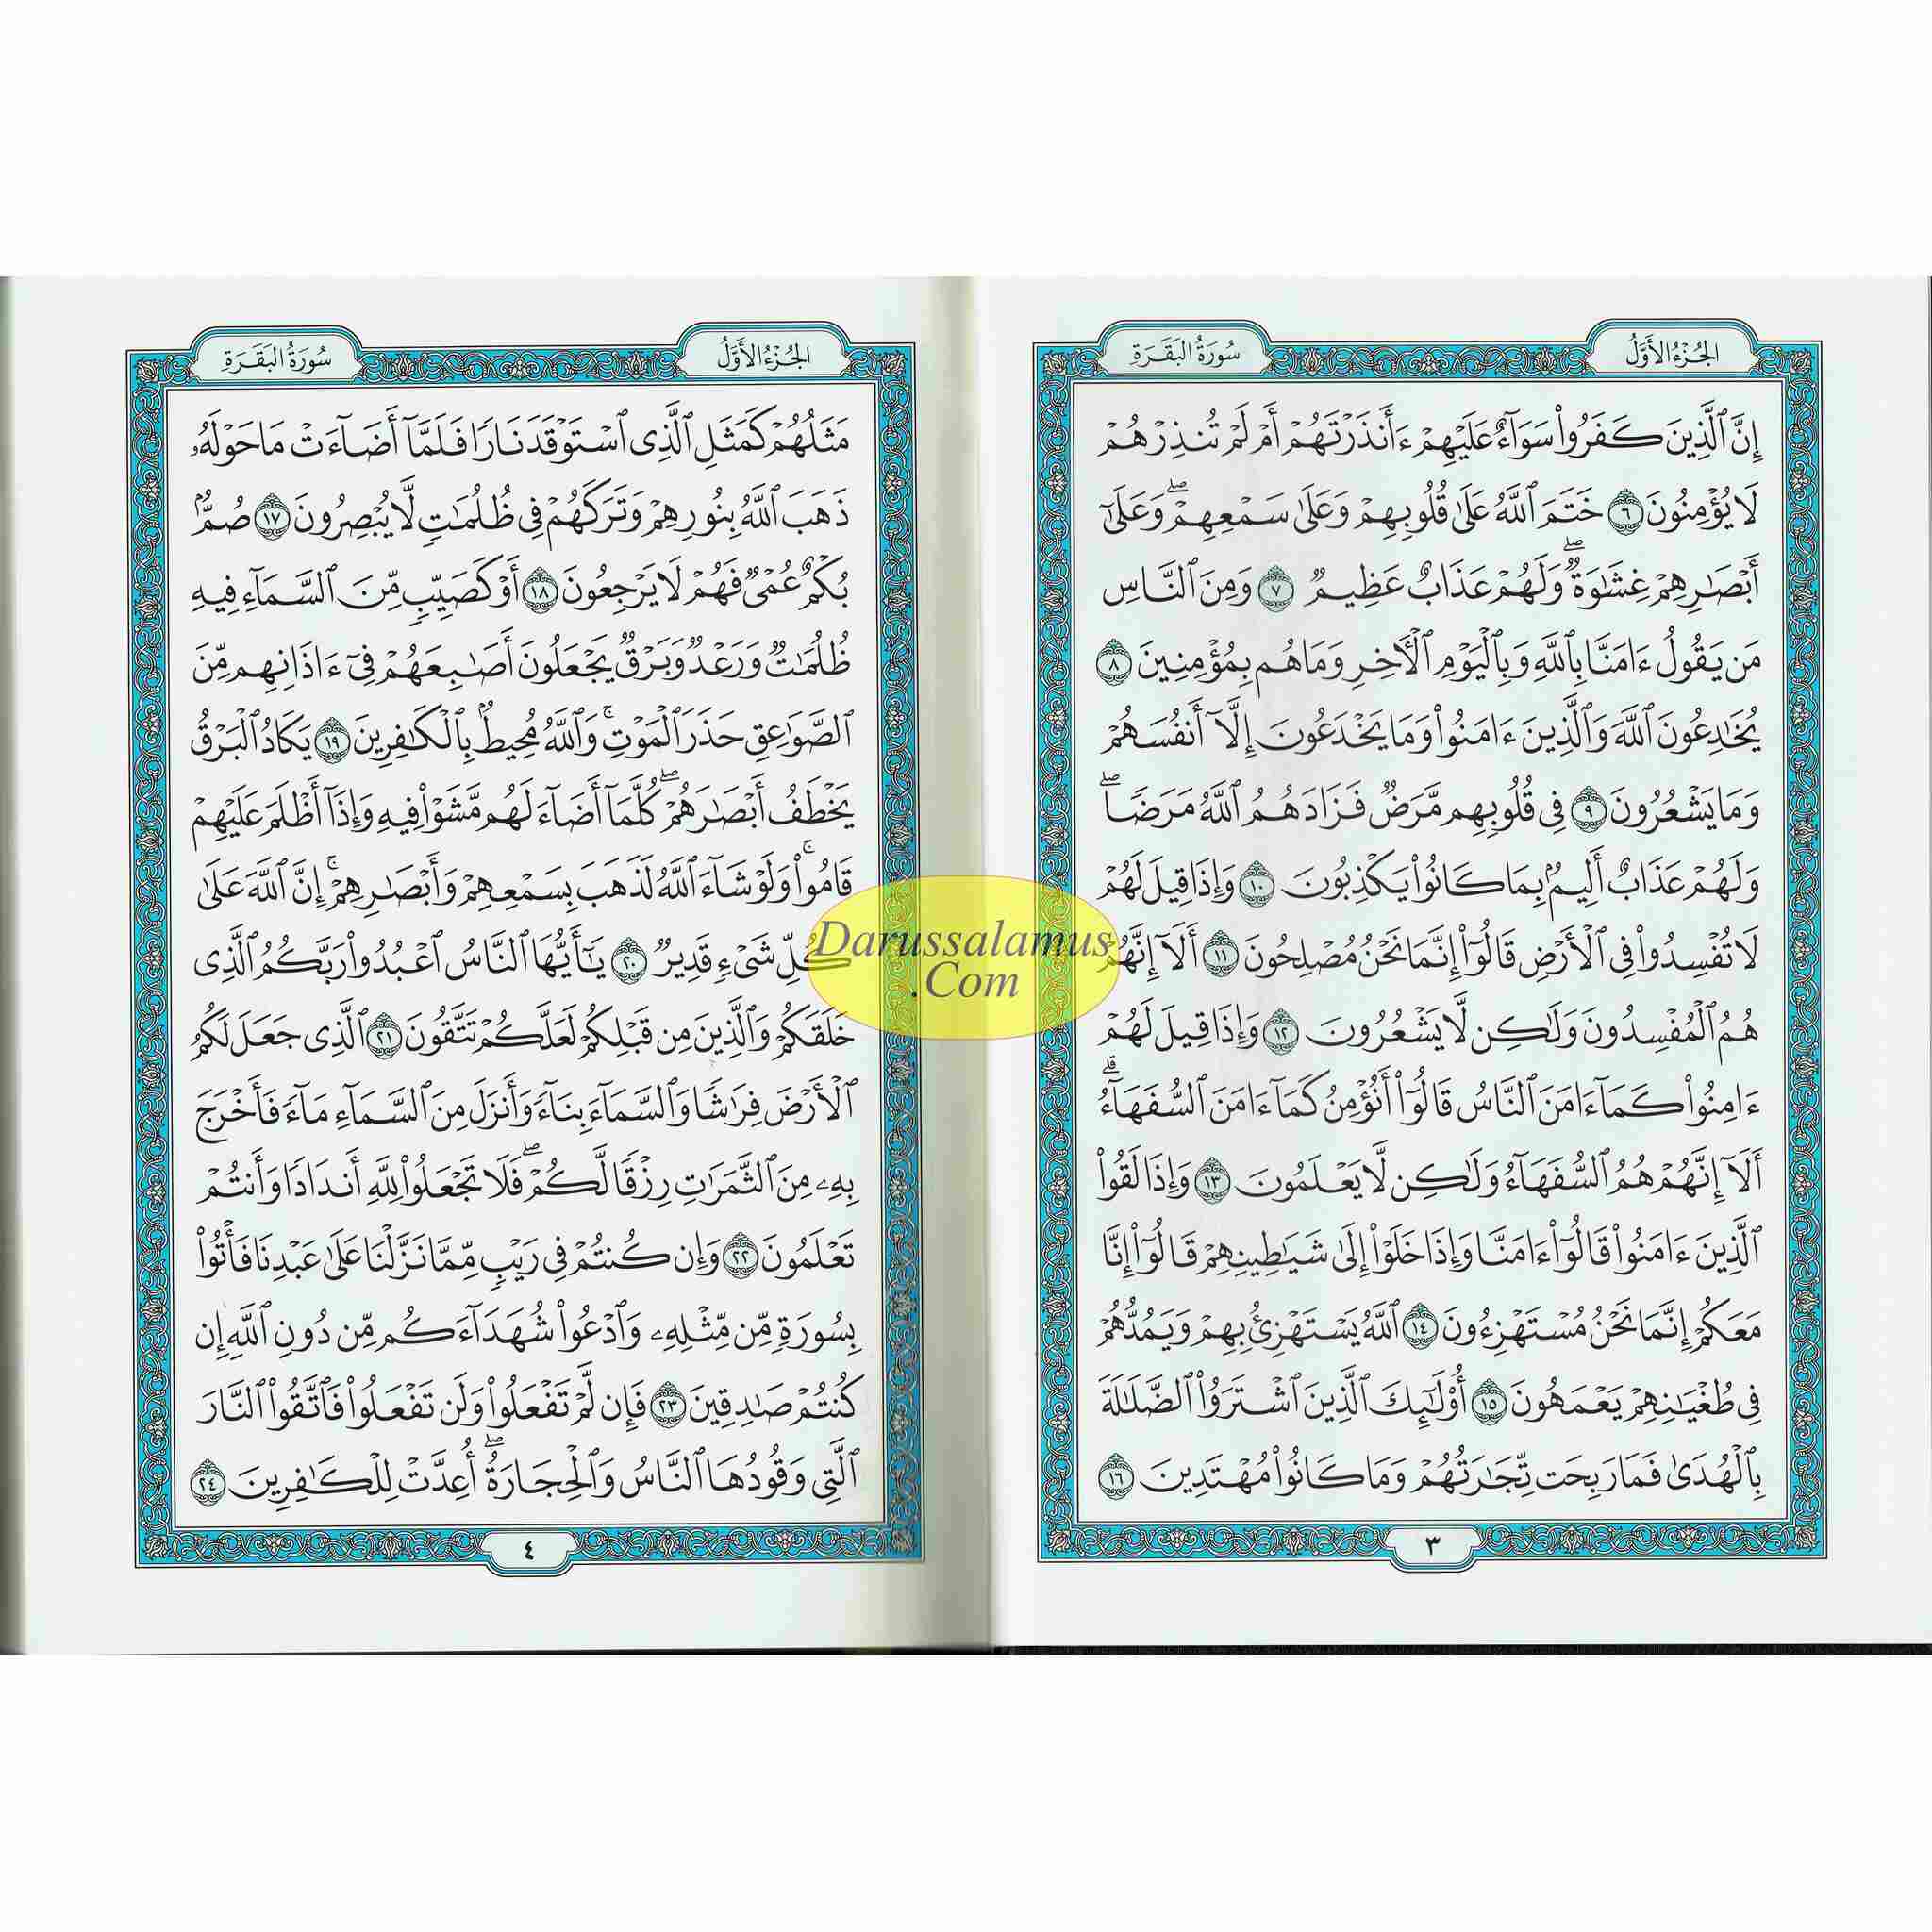 الجُزْءُ الأَوَّلُ
سُورَةُ البَقَرَةِ
إِنَّ ٱلَّذِينَ كَفَرُوا۟ سَوَآءٌ عَلَيْهِمْ ءَأَنذَرْتَهُمْ أَمْ لَمْ تُنذِرْهُمْ
لَا يُؤْمِنُونَ ٦ خَتَمَ ٱللَّهُ عَلَىٰ قُلُوبِهِمْ وَعَلَىٰ سَمْعِهِمْ ۖ وَعَلَىٰٓ
أَبْصَـٰرِهِمْ غِشَـٰوَةٌ ۖ وَلَهُمْ عَذَابٌ عَظِيمٌ ٧ وَمِنَ ٱلنَّاسِ
مَن يَقُولُ ءَامَنَّا بِٱللَّهِ وَبِٱلْيَوْمِ ٱلْـَٔاخِرِ وَمَا هُم بِمُؤْمِنِينَ ٨
يُخَـٰدِعُونَ ٱللَّهَ وَٱلَّذِينَ ءَامَنُوا۟ وَمَا يَخْدَعُونَ إِلَّآ أَنفُسَهُمْ
وَمَا يَشْعُرُونَ ٩ فِى قُلُوبِهِم مَّرَضٌ فَزَادَهُمُ ٱللَّهُ مَرَضًا ۖ
وَلَهُمْ عَذَابٌ أَلِيمٌۢ بِمَا كَانُوا۟ يَكْذِبُونَ ١٠ وَإِذَا قِيلَ لَهُمْ
لَا تُفْسِدُوا۟ فِى ٱلْأَرْضِ قَالُوٓا۟ إِنَّمَا نَحْنُ مُصْلِحُونَ ١١ أَلَآ إِنَّهُمْ
هُمُ ٱلْمُفْسِدُونَ وَلَـٰكِن لَّا يَشْعُرُونَ ١٢ وَإِذَا قِيلَ لَهُمْ
ءَامِنُوا۟ كَمَآ ءَامَنَ ٱلنَّاسُ قَالُوٓا۟ أَنُؤْمِنُ كَمَآ ءَامَنَ ٱلسُّفَهَآءُ ۗ
أَلَآ إِنَّهُمْ هُمُ ٱلسُّفَهَآءُ وَلَـٰكِن لَّا يَعْلَمُونَ ١٣ وَإِذَا لَقُوا۟
ٱلَّذِينَ ءَامَنُوا۟ قَالُوٓا۟ ءَامَنَّا وَإِذَا خَلَوْا۟ إِلَىٰ شَيَـٰطِينِهِمْ قَالُوٓا۟ إِنَّا
مَعَكُمْ إِنَّمَا نَحْنُ مُسْتَهْزِءُونَ ١٤ ٱللَّهُ يَسْتَهْزِئُ بِهِمْ وَيَمُدُّهُمْ
فِى طُغْيَـٰنِهِمْ يَعْمَهُونَ ١٥ أُو۟لَـٰٓئِكَ ٱلَّذِينَ ٱشْتَرَوُا۟ ٱلضَّلَـٰلَةَ
بِٱلْهُدَىٰ فَمَا رَبِحَت تِّجَـٰرَتُهُمْ وَمَا كَانُوا۟ مُهْتَدِينَ ١٦
٣
الجُزْءُ الأَوَّلُ
سُورَةُ البَقَرَةِ
مَثَلُهُمْ كَمَثَلِ ٱلَّذِى ٱسْتَوْقَدَ نَارًا فَلَمَّآ أَضَآءَتْ مَا حَوْلَهُۥ
ذَهَبَ ٱللَّهُ بِنُورِهِمْ وَتَرَكَهُمْ فِى ظُلُمَـٰتٍ لَّا يُبْصِرُونَ ١٧ صُمٌّۢ
بُكْمٌ عُمْىٌ فَهُمْ لَا يَرْجِعُونَ ١٨ أَوْ كَصَيِّبٍ مِّنَ ٱلسَّمَآءِ فِيهِ
ظُلُمَـٰتٌ وَرَعْدٌ وَبَرْقٌ يَجْعَلُونَ أَصَـٰبِعَهُمْ فِىٓ ءَاذَانِهِم مِّنَ
ٱلصَّوَٰعِقِ حَذَرَ ٱلْمَوْتِ ۚ وَٱللَّهُ مُحِيطٌۢ بِٱلْكَـٰفِرِينَ ١٩ يَكَادُ ٱلْبَرْقُ
يَخْطَفُ أَبْصَـٰرَهُمْ ۖ كُلَّمَآ أَضَآءَ لَهُم مَّشَوْا۟ فِيهِ وَإِذَآ أَظْلَمَ عَلَيْهِمْ
قَامُوا۟ ۚ وَلَوْ شَآءَ ٱللَّهُ لَذَهَبَ بِسَمْعِهِمْ وَأَبْصَـٰرِهِمْ ۚ إِنَّ ٱللَّهَ عَلَىٰ
كُلِّ شَىْءٍ قَدِيرٌ ٢٠ يَـٰٓأَيُّهَا ٱلنَّاسُ ٱعْبُدُوا۟ رَبَّكُمُ ٱلَّذِى
خَلَقَكُمْ وَٱلَّذِينَ مِن قَبْلِكُمْ لَعَلَّكُمْ تَتَّقُونَ ٢١ ٱلَّذِى جَعَلَ لَكُمُ
ٱلْأَرْضَ فِرَٰشًا وَٱلسَّمَآءَ بِنَآءً وَأَنزَلَ مِنَ ٱلسَّمَآءِ مَآءً فَأَخْرَجَ
بِهِۦ مِنَ ٱلثَّمَرَٰتِ رِزْقًا لَّكُمْ ۖ فَلَا تَجْعَلُوا۟ لِلَّهِ أَندَادًا وَأَنتُمْ
تَعْلَمُونَ ٢٢ وَإِن كُنتُمْ فِى رَيْبٍ مِّمَّا نَزَّلْنَا عَلَىٰ عَبْدِنَا فَأْتُوا۟
بِسُورَةٍ مِّن مِّثْلِهِۦ وَٱدْعُوا۟ شُهَدَآءَكُم مِّن دُونِ ٱللَّهِ إِن
كُنتُمْ صَـٰدِقِينَ ٢٣ فَإِن لَّمْ تَفْعَلُوا۟ وَلَن تَفْعَلُوا۟ فَٱتَّقُوا۟ ٱلنَّارَ
ٱلَّتِى وَقُودُهَا ٱلنَّاسُ وَٱلْحِجَارَةُ ۖ أُعِدَّتْ لِلْكَـٰفِرِينَ ٢٤
٤
Darussalamus
.Com